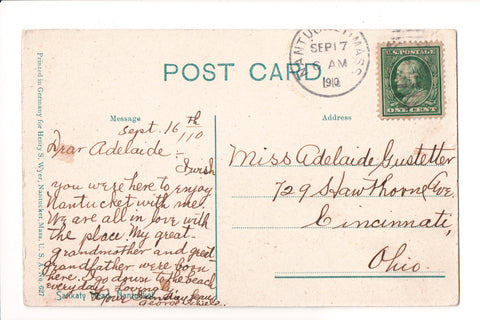 NANTUCKET, MASS.
SEP 17
6 AM
1910
U.S. POSTAGE
ONE CENT
POST CARD
Message
Address
Printed in Germany for Henry S. Wyer, Nantucket, Mass. U. S. A. No. 627
Sept. 16th/10
Dear Adelaide:-
I wish
you were here to enjoy
Nantucket with me.
We are all in love with
the place. My great-
grandmother and great
grandfather were born
here. I go down to the beach
everyday. Loving
Your friend
George
Sankaty Head,
Miss Adelaide Gustetter
729 Hawthorne Ave.
Cincinnati,
Ohio.